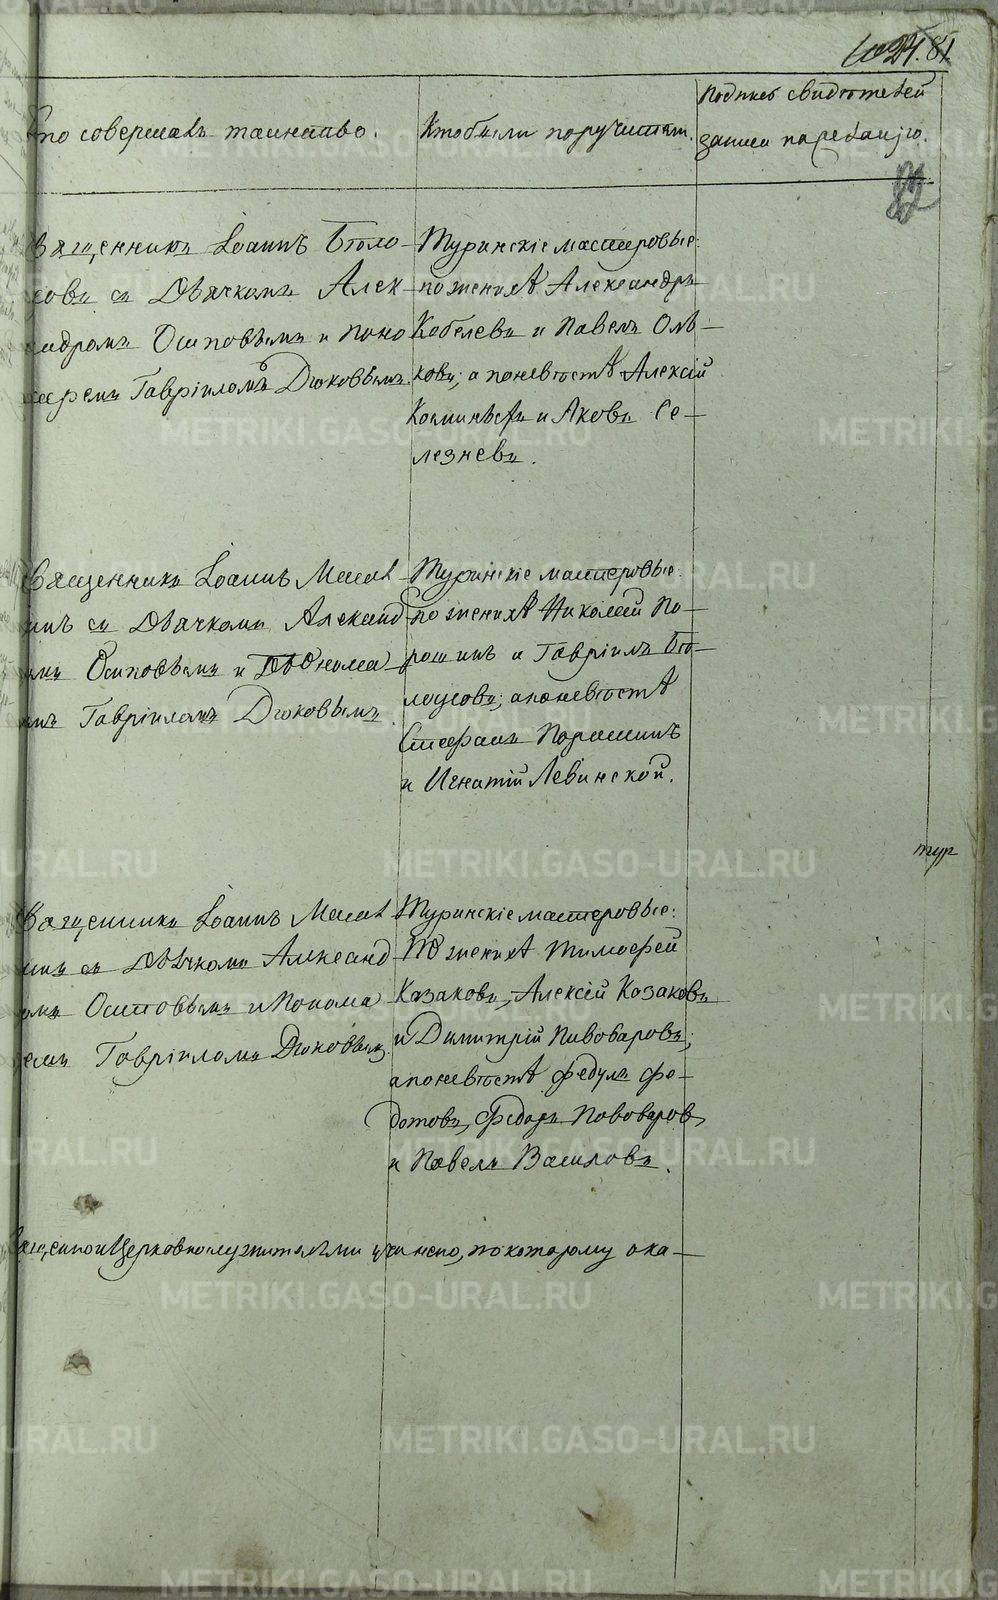 81.
Кто совершалъ таинство.
Кто были поручители.
Подпись свидѣтелей
записи по желанію.
Священникъ Іоаннъ Бѣло-
совъ съ Дьячкомъ Алек-
сандромъ Осиповымъ и Поно-
маремъ Гавріиломъ Дюковымъ.
Туринскіе мастеровые:
по женихѣ Александръ
Кобелевъ и Павелъ
ковъ; а по невѣстѣ Алексій
и Яковъ Се-
лезневъ.
Священникъ Іоаннъ
съ Дьячкомъ Александ
омъ Осиповымъ и Понома
емъ Гавріиломъ Дюковымъ.
Туринскіе мастеровые:
по женихѣ Николай По-
рошинъ и Гавріилъ Бѣ-
лоусовъ; а по невѣстѣ
Стефанъ Порошинъ
и Игнатій Левинской.
тур
Священникъ Іоаннъ
съ Дьячкомъ Александ
омъ Осиповымъ и Понома
емъ Гавріиломъ Дюковымъ.
Туринскіе мастеровые:
По женихѣ Тимофей
Казаковъ, Алексій Козаковъ
и Димитрій Пивоваровъ;
а по невѣстѣ Федулъ Фе-
дотовъ, Федоръ Пововаровъ,
и Павелъ Василовъ.
Священно и Церковнослужителями учинено, по которому ока-
METRIKI.GASO-URAL.RU